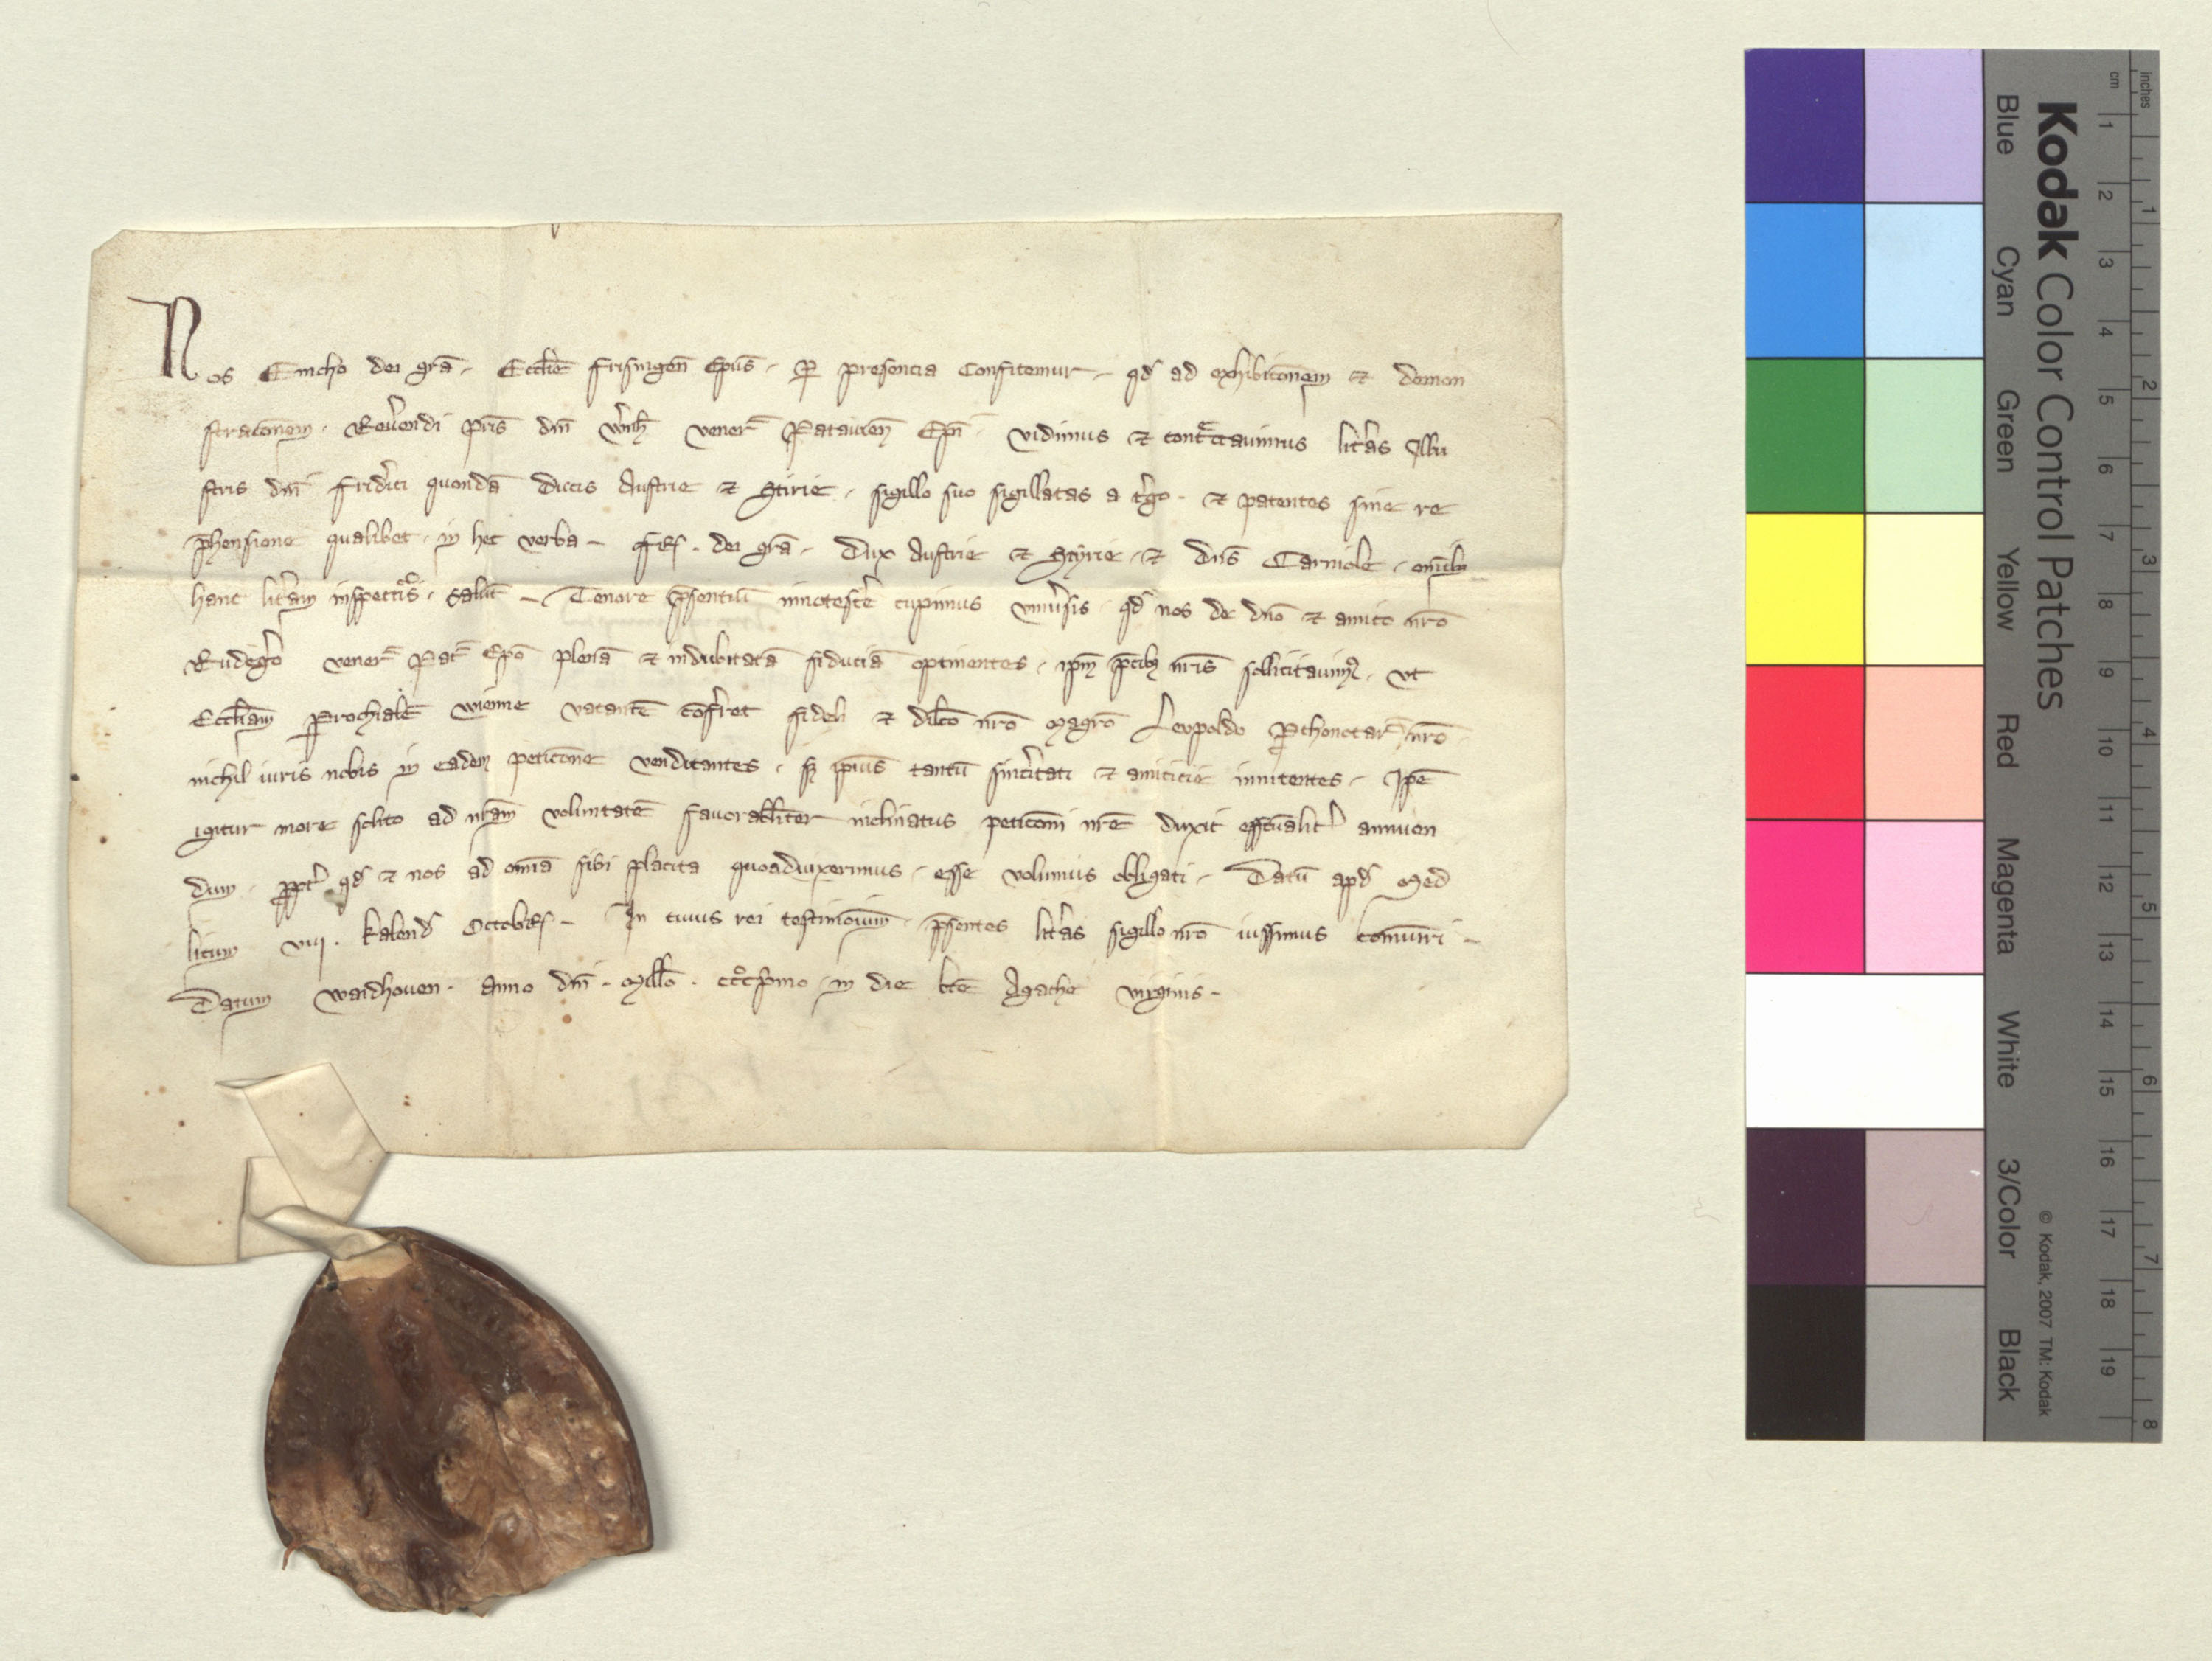 Nos Emcho dei grā. Eccłie frisingeñ Epūs. ꝑ presencia Confitemur. qd ad exhibicōnem et demon
stracōnem. Reu̓endi pr̄is dm̄ wernh̄ vener̄ Patauieñ Epī. vidimus et cont̄ctauimus litt̓as Illu
stris dn̄i frid̓ici quondā Ducis Austrie et Stirie. sigillo suo sigillatas a t̓go. et patentes sine re
p̄hensione qualibet. in hec verba. frid. dei grā. Dux Austrie et Styrie. et Dn̄s Carniole. omīb;
hanc litt̓am inspect̓is. salūt. Tenore p̄sentiū innotesc̓e cupimus vniu̓sis. qd nos de dnō et amico nr̄o
Rudeg̓o vener̄ Pat̄ Epō plenā et indubitatā fiduciā optinentes. ipm̄ p̄cib; nr̄is sollicitauim9. vt
Eccłiam Parochialē wienne vacantē conf̓ret fideli et dilc̄o nr̄o Magrō Leupoldo ꝓthonotar̄ nr̄o
nichil iuris nobis in eadem peticōne vendicantes. sz ipīus tantū sinc̓itati et amicicie innitentes. Ipē
igitur more solito ad nr̄am voluntatē fauorabłiter inclinatus peticōni nr̄e duxit effc̄ualit̓ annuen
dum. ꝓpt̓ qd et nos ad omīa sibi placita quoaduixerimus. esse volumus obligati. Datū apd Med
licum viij. kalend Octobr. In cuius rei testimonium p̄sentes litt̓as sigillo nr̄o iussimus comūiri
Datum waidhouen. anno dn̄i. Miłło. ccc̊pmo in die btē Agathe virginis.
Kodak Color Control Patches
Blue Cyan Green Yellow Red Magenta White 3/Color Black
© Kodak, 2007 TM: Kodak
cm 1 2 3 4 5 6 7 8 9 10 11 12 13 14 15 16 17 18 19
inches 1 2 3 4 5 6 7 8